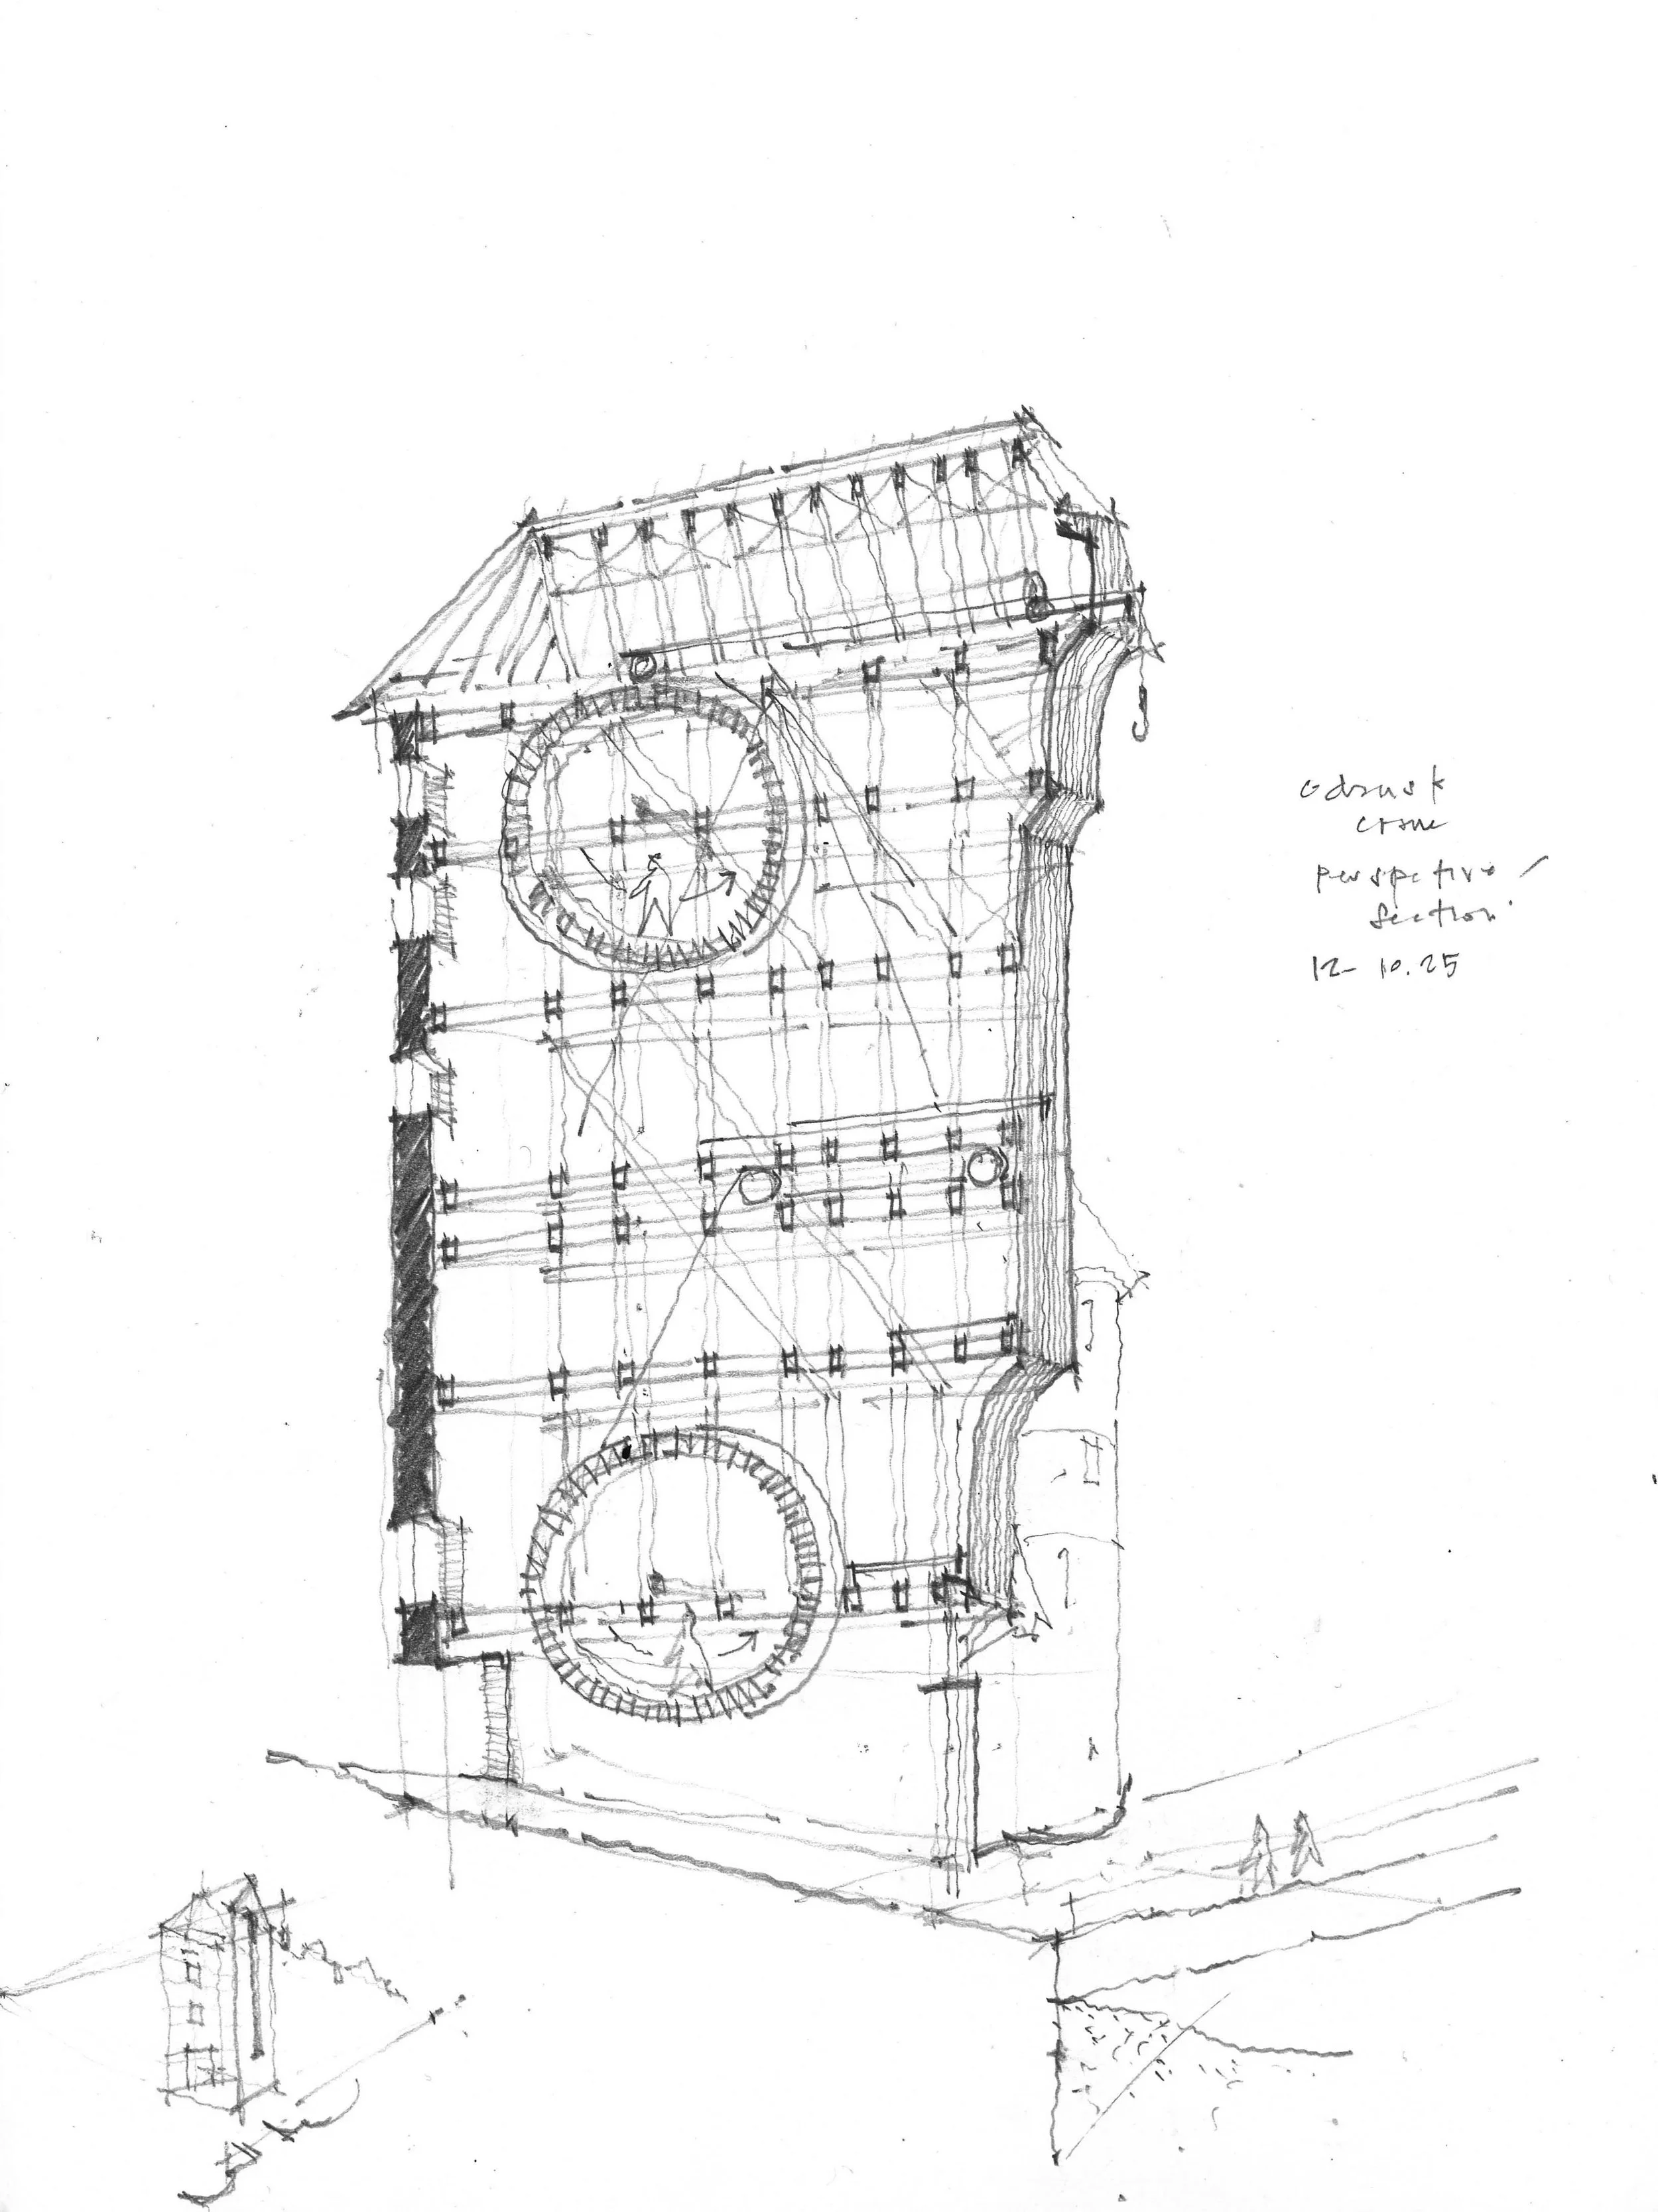 Gdansk
crane
perspective /
section
12-10.25